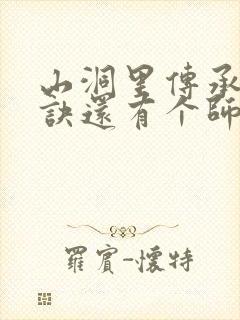 山洞里傳承
訣還有个師
羅賓-懷特